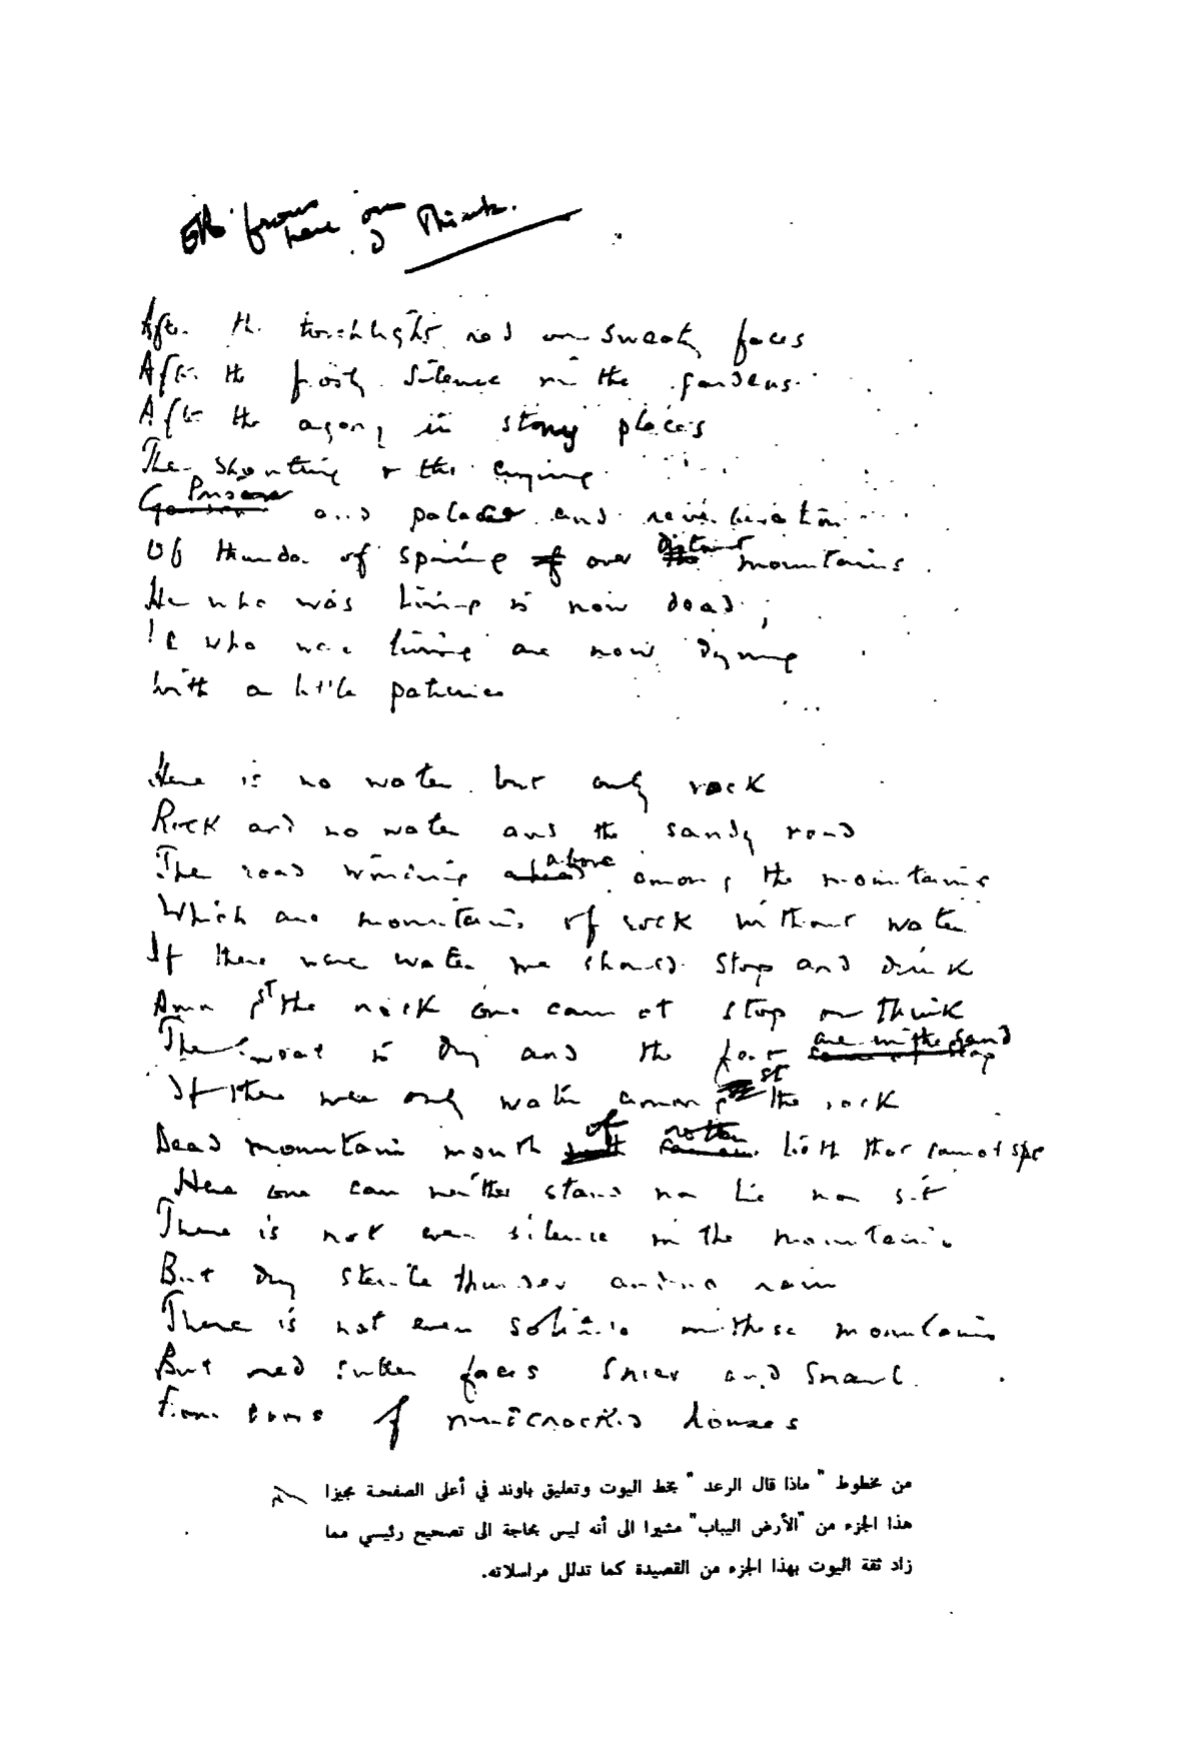 OK from here on I think.
After the torchlight red on sweaty faces
After the frosty silence in the gardens
After the agony in stony places
The shouting & the crying
Garden Prison and palace and reverberation
Of thunder of spring of over distant mountains
He who was living is now dead;
We who were living are now dying
With a little patience
Here is no water but only rock
Rock and no water and the sandy road
The road winding ahead above among the mountains
Which are mountains of rock without water
If there were water we should stop and drink
Amongst the rock one cannot stop or think
The sweat is dry and the feet are in the sand cannot stop
If there were only water amongst the rock
Dead mountain mouth of rotten teeth that cannot spit
Here one can neither stand nor lie nor sit
There is not even silence in the mountains
But dry sterile thunder and no rain
There is not even solitude in these mountains
But red sullen faces sneer and snarl
From doors of mudcracked houses
من مخطوط " ماذا قال الرعد " بخط اليوت وتعليق باوند في أعلى الصفحة مجيزا
هذا الجزء من "الأرض اليباب" مشيرا الى أنه ليس بحاجة الى تصحيح رئيسي مما
زاد ثقة اليوت بهذا الجزء من القصيدة كما تدلل مراسلاته.